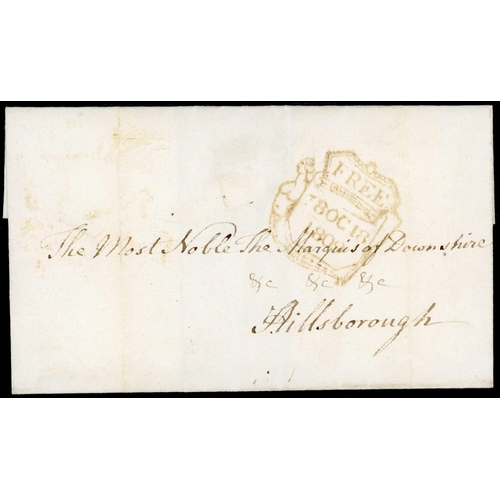 FREE
18OC18
The Most Noble The Marquis of Downshire
&c &c &c
Hillsborough